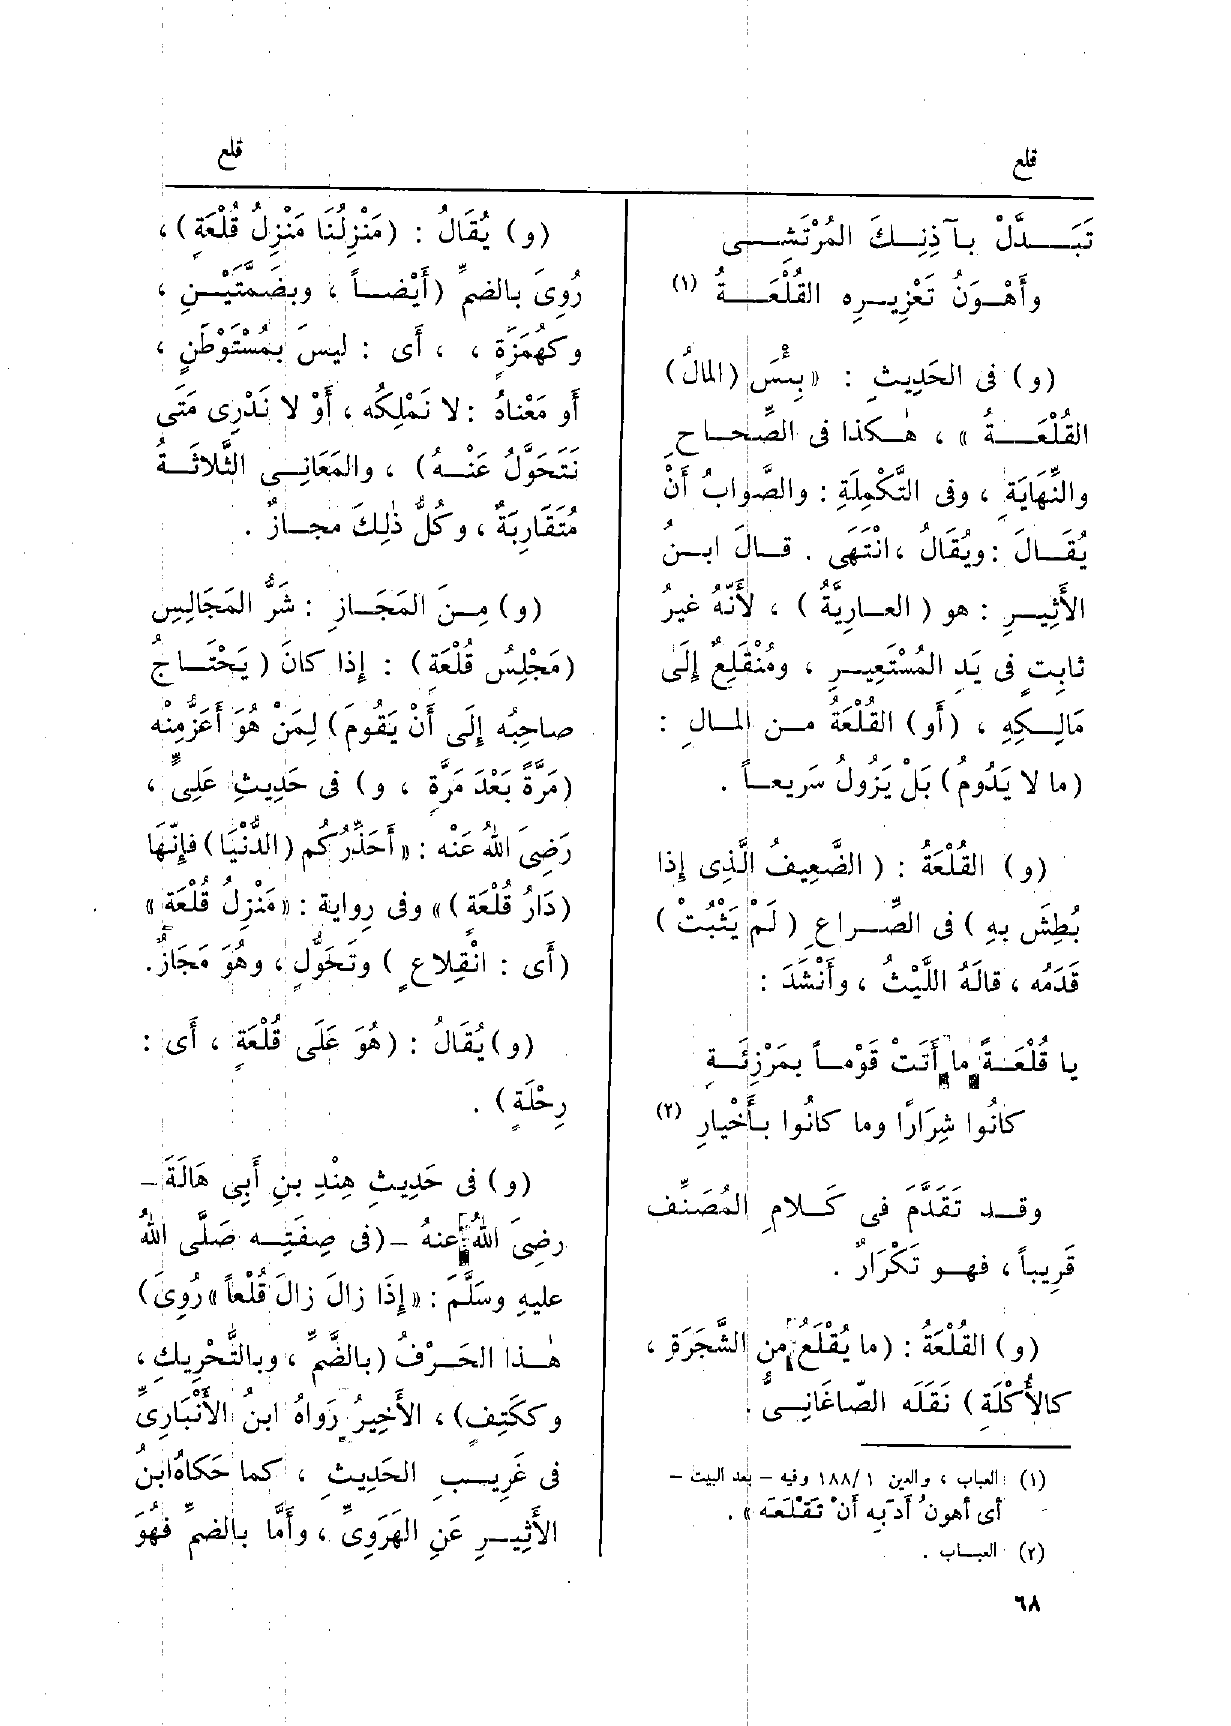 قلع
قلع
تَبَــدَّلْ بـآذِنِـكَ المُرْتَشِـى
وأَهْـوَنُ تَعْزِيـره القُلْعَـةُ (١)
(و) فى الحَدِيثِ : « بِئْسَ (المالُ)
القُلْعَــةُ » ، هٰـكذا فى الصِّحـاحِ
والنِّهَايَةِ ، وفى التَّكْمِلَةِ : والصَّوابُ أَنْ
يُقَـالَ : ويُقَالُ ، انْتَهَى . قـالَ ابـنُ
الأَثِيـرِ : هو ( العـارِيَّةُ ) ، لأَنَّهُ غيرُ
ثابِتٍ فى يَدِ المُسْتَعِيـرِ ، ومُنْقَلِعٌ إِلَى
مَالِـكِهِ ، (أو) القُلْعَةُ مـن المـالِ :
(ما لا يَدُومُ) بَلْ يَزُولُ سَرِيعـاً .
(و) القُلْعَةُ : ( الضَّعِيفُ الَّذِى إِذا
بُطِشَ بهِ ) فى الصِّـراعِ ( لَمْ يَثْبُتْ )
قَدَمُه ، قالَهُ اللَّيْثُ ، وأَنْشَدَ :
يا قُلْعَـةً ما أَتَتْ قَوْمـاً بمَرْزِئَـةٍ
كانُوا شِرَارًا وما كانُوا بـأَخْيارِ (٢)
وقـد تَقَدَّمَ فى كَـلامِ المُصَنِّف
قَرِيباً ، فهـو تَكْرَارٌ .
(و) القُلْعَةُ : (ما يُقْلَعُ من الشَّجَرَةِ ،
كالأُكْلَةِ) نَقَلَه الصّاغَانِـىُّ .
(١) العباب ، والعين ١٨٨/١ وفيه – بعد البيت –
أى أهونُ أدَبِه أن تَقْلَعَه » .
(٢) العبـاب .
(و) يُقَالُ : (مَنْزِلُنَا مَنْزِلُ قُلْعَةٍ) ،
رُوِىَ بالضمِّ (أَيْضـاً ، وبضَمَّتَيْـنِ ،
وكهُمَزَةٍ ، ، أَى : ليسَ بمُسْتَوْطَنٍ ،
أو مَعْناهُ : لا نَمْلِكُه ، أَوْ لا نَدْرِى مَتَى
نَتَحَوَّلُ عَنْـهُ) ، والمَعَانِـى الثَّلاثَـةُ
مُتَقَارِبَةٌ ، وكُلُّ ذٰلِكَ مجـازٌ .
(و) مِـنَ المَجَـازِ : شَرُّ المَجَالِسِ
(مَجْلِسُ قُلْعَةٍ) : إِذا كانَ ( يَحْتَـاجُ
صاحِبُه إِلى أَنْ يَقُومَ) لِمَنْ هُوَ أَعَزُّ مِنْه
(مَرَّةً بَعْدَ مَرَّةٍ ، و) فى حَدِيثِ عَلِىٍّ ،
رَضِىَ اللهُ عَنْه : « أُحَذِّرُكُم (الدُّنْيَا) فإِنَّهَا
(دَارُ قُلْعَةٍ) » وفى رِواية : « مَنْزِلُ قُلْعَةٍ »
(أى : انْقِلاعٍ ) وتَحَوُّلٍ ، وهُوَ مَجَازٌ.
(و) يُقَالُ : (هُوَ عَلَى قُلْعَةٍ ، أَى :
رِحْلَةٍ) .
(و) فى حَدِيثِ هِنْدِ بنِ أَبِى هَالَةَ –
رضِىَ اللهُ عنهُ – (فى صِفَتِـه صَلَّى اللهُ
عليهِ وسَلَّمَ : « إِذَا زالَ زالَ قُلْعاً » رُوِىَ)
هٰـذا الحَـرْفُ (بالضَّمِّ ، وبالتَّحْرِيكِ ،
وككَتِفٍ) ، الأَخِيرُ رَواهُ ابنُ الأَنْبَارِىِّ
فى غَرِيـبِ الحَدِيثِ ، كما حَكاهُ ابنُ
الأَثِيـرِ عَنِ الهَرَوِىِّ ، وأَمَّا بالضمِّ فهُوَ
٦٨